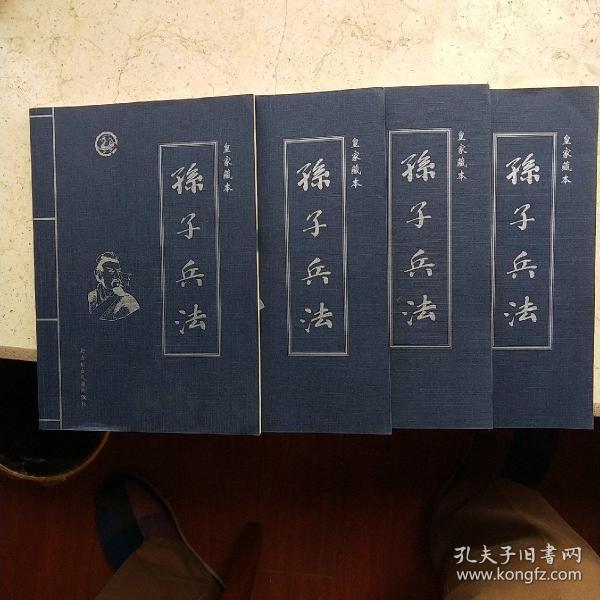 皇家藏本
孫子兵法
皇家藏本
孫子兵法
皇家藏本
孫子兵法
皇家藏本
孫子兵法
孔夫子旧书网
www.kongfz.com